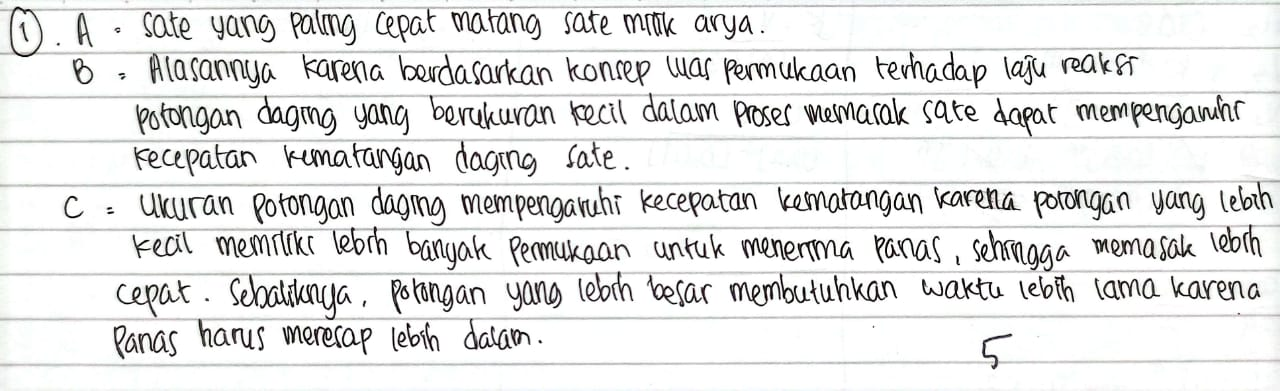 1. A = sate yang paling cepat matang sate milik arya.
B = Alasannya karena berdasarkan konsep luas permukaan terhadap laju reaksi
potongan daging yang berukuran kecil dalam proses memasak sate dapat mempengaruhi
kecepatan kematangan daging sate.
C = Ukuran potongan daging mempengaruhi kecepatan kematangan karena potongan yang lebih
kecil memiliki lebih banyak permukaan untuk menerima panas, sehingga memasak lebih
cepat. Sebaliknya, potongan yang lebih besar membutuhkan waktu lebih lama karena
panas harus meresap lebih dalam.
5